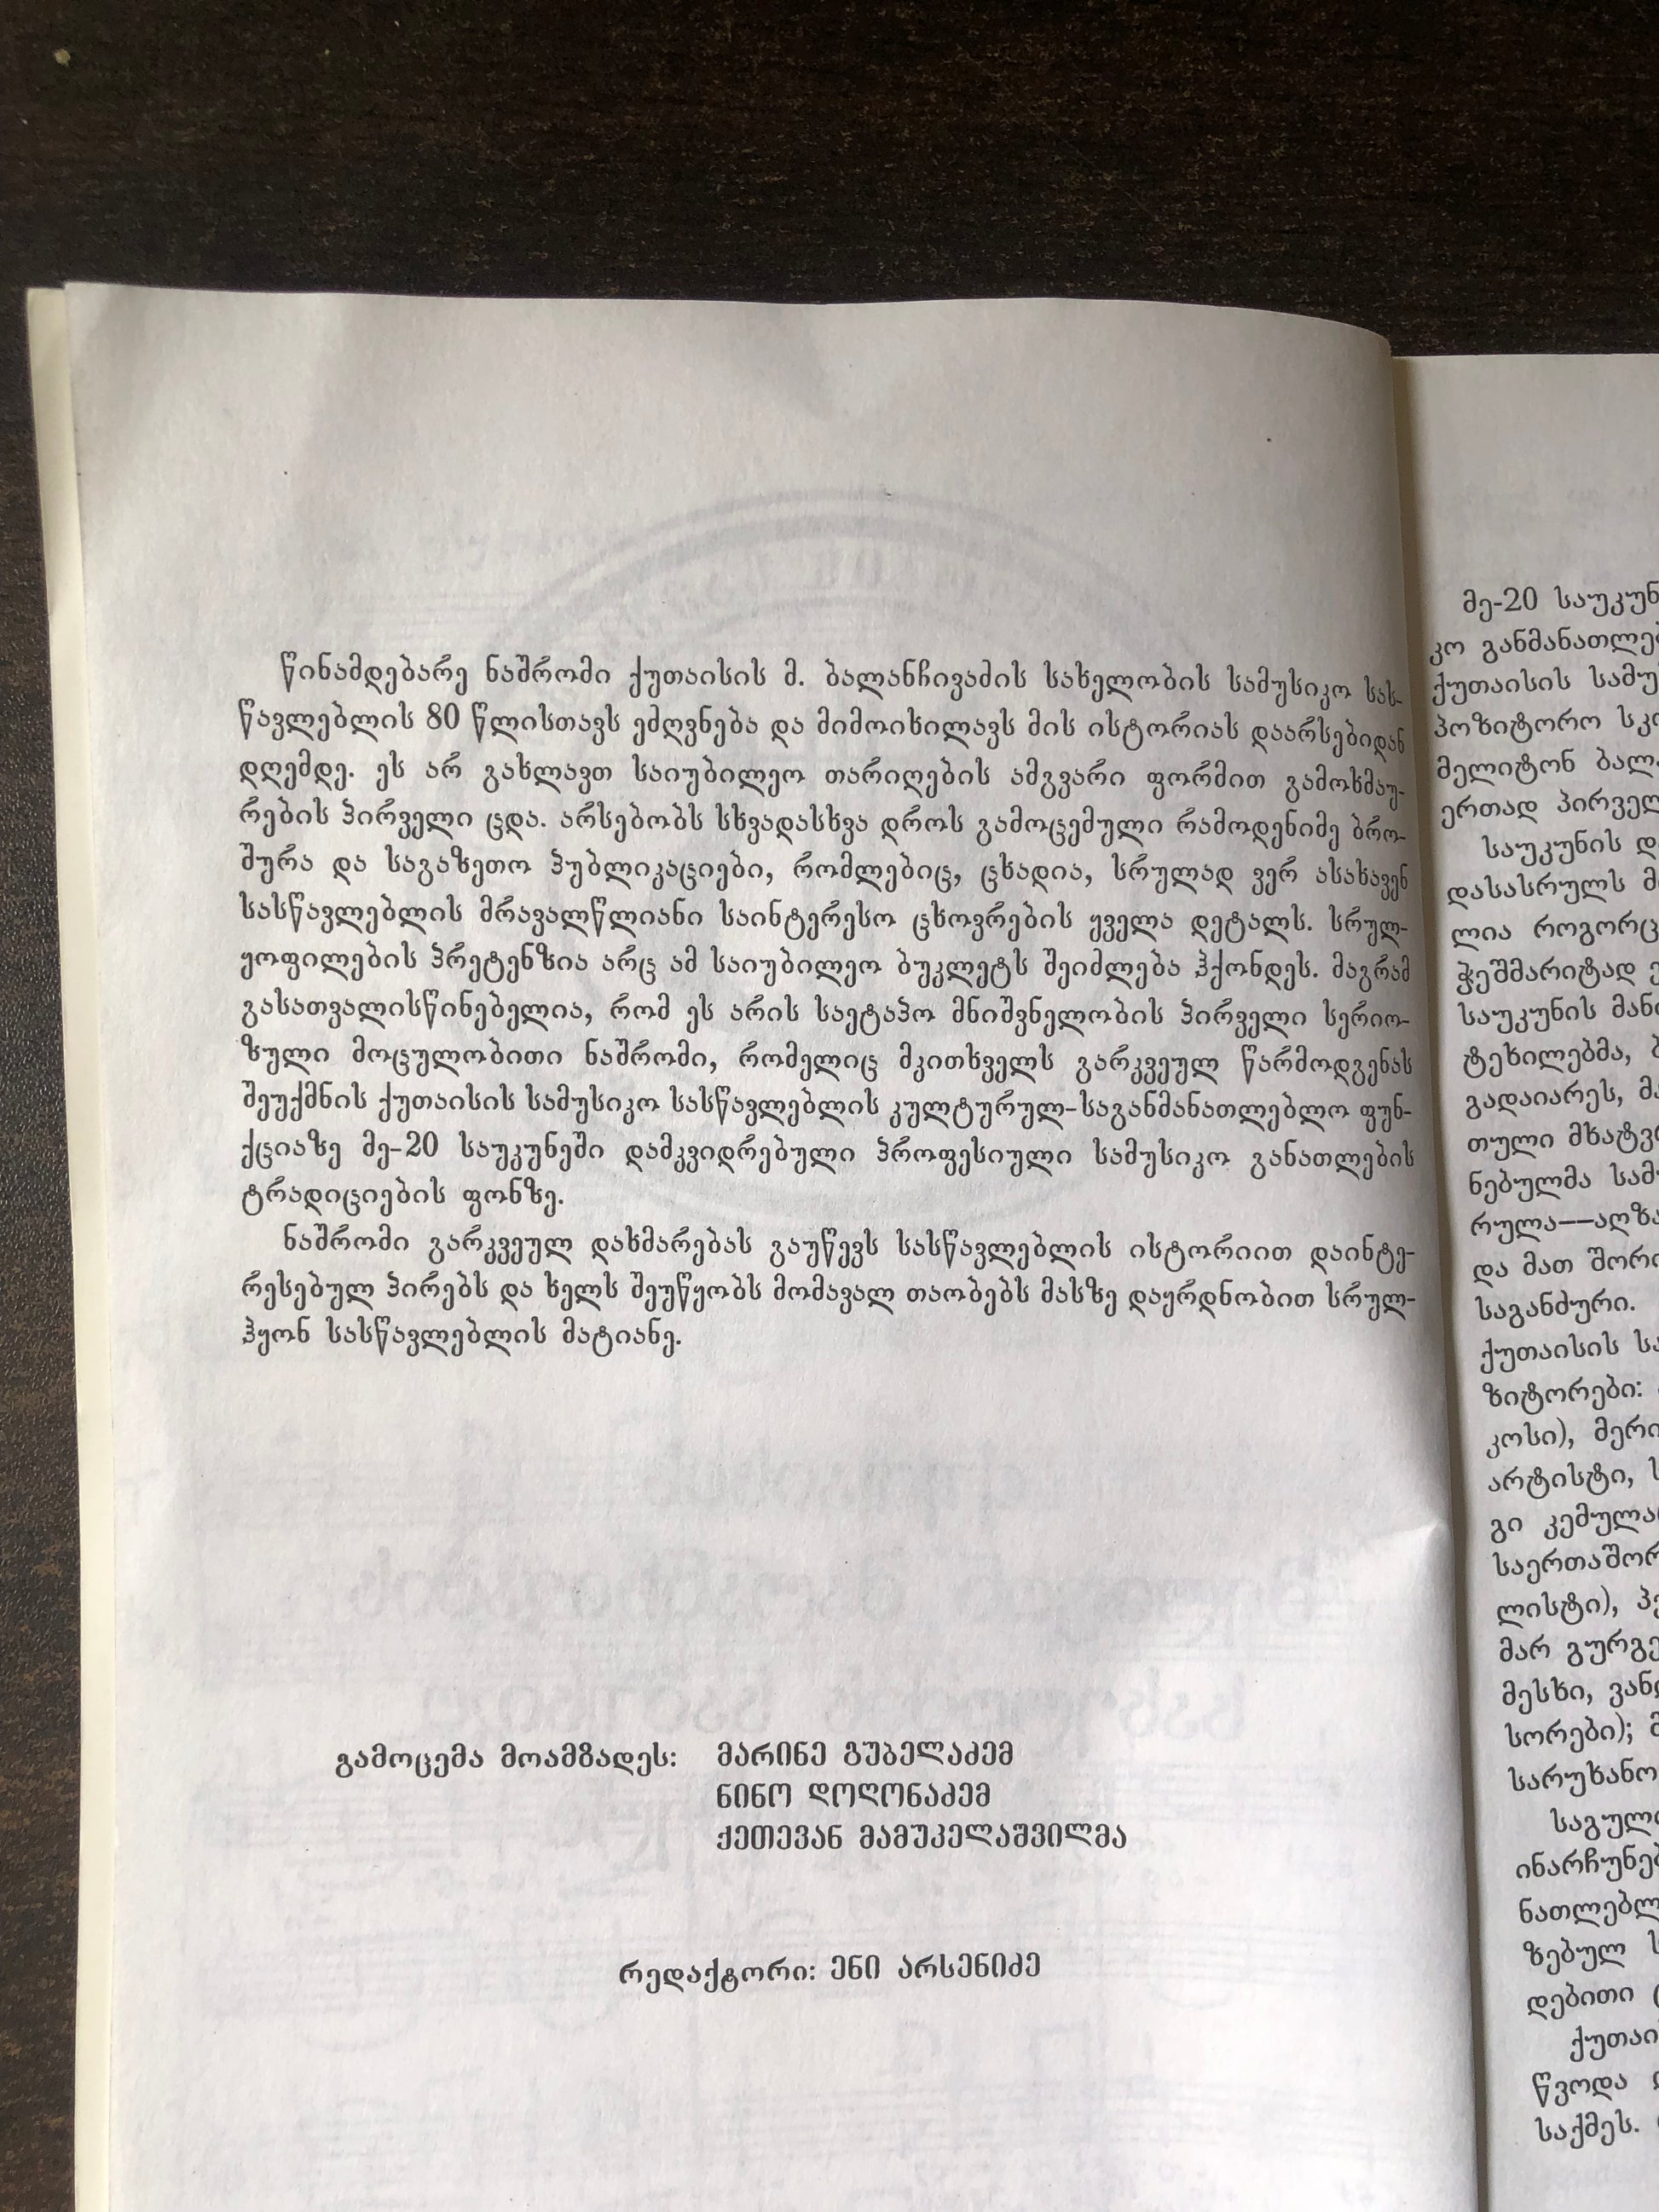 წინამდებარე ნაშრომი ქუთაისის მ. ბალანჩივაძის სახელობის სამუსიკო სას-
წავლებლის 80 წლისთავს ეძღვნება და მიმოიხილავს მის ისტორიას დაარსებიდან
დღემდე. ეს არ გახლავთ საიუბილეო თარიღების ამგვარი ფორმით გამოხმაუ-
რების პირველი ცდა. არსებობს სხვადასხვა დროს გამოცემული რამოდენიმე ბრო-
შურა და საგაზეთო პუბლიკაციები, რომლებიც, ცხადია, სრულად ვერ ასახავენ
სასწავლებლის მრავალწლიანი საინტერესო ცხოვრების ყველა დეტალს. სრულ-
ყოფილების პრეტენზია არც ამ საიუბილეო ბუკლეტს შეიძლება ჰქონდეს. მაგრამ
გასათვალისწინებელია, რომ ეს არის საეტაპო მნიშვნელობის პირველი სერიო-
ზული მოცულობითი ნაშრომი, რომელიც მკითხველს გარკვეულ წარმოდგენას
შეუქმნის ქუთაისის სამუსიკო სასწავლებლის კულტურულ-საგანმანათლებლო ფუნ-
ქციაზე მე-20 საუკუნეში დამკვიდრებული პროფესიული სამუსიკო განათლების
ტრადიციების ფონზე.
ნაშრომი გარკვეულ დახმარებას გაუწევს სასწავლებლის ისტორიით დაინტე-
რესებულ პირებს და ხელს შეუწყობს მომავალ თაობებს მასზე დაყრდნობით სრულ-
ჰყონ სასწავლებლის მატიანე.
გამოცემა მოამზადეს: მარინე გუბელაძემ
ნინო ღოღონაძემ
ქეთევან მამუკელაშვილმა
რედაქტორი: ენი არსენიძე
მე-20
კო
ქუთაისის
პოზიტორო
მელიტონ
ერთად
საუკუნის
დასასრულს
ლია როგორც
ჭეშმარიტად
საუკუნის
ტეხილებმა,
გადაიარეს,
თული
ნებულმა
რულა—
და მათ
საგანძური.
ქუთაისის
ზიტორები:
კოსი),
არტისტი,
გი
ლისტი),
მარ
მესხი,
სორები);
ზებულ
დებითი
წვოდა
საქმეს.